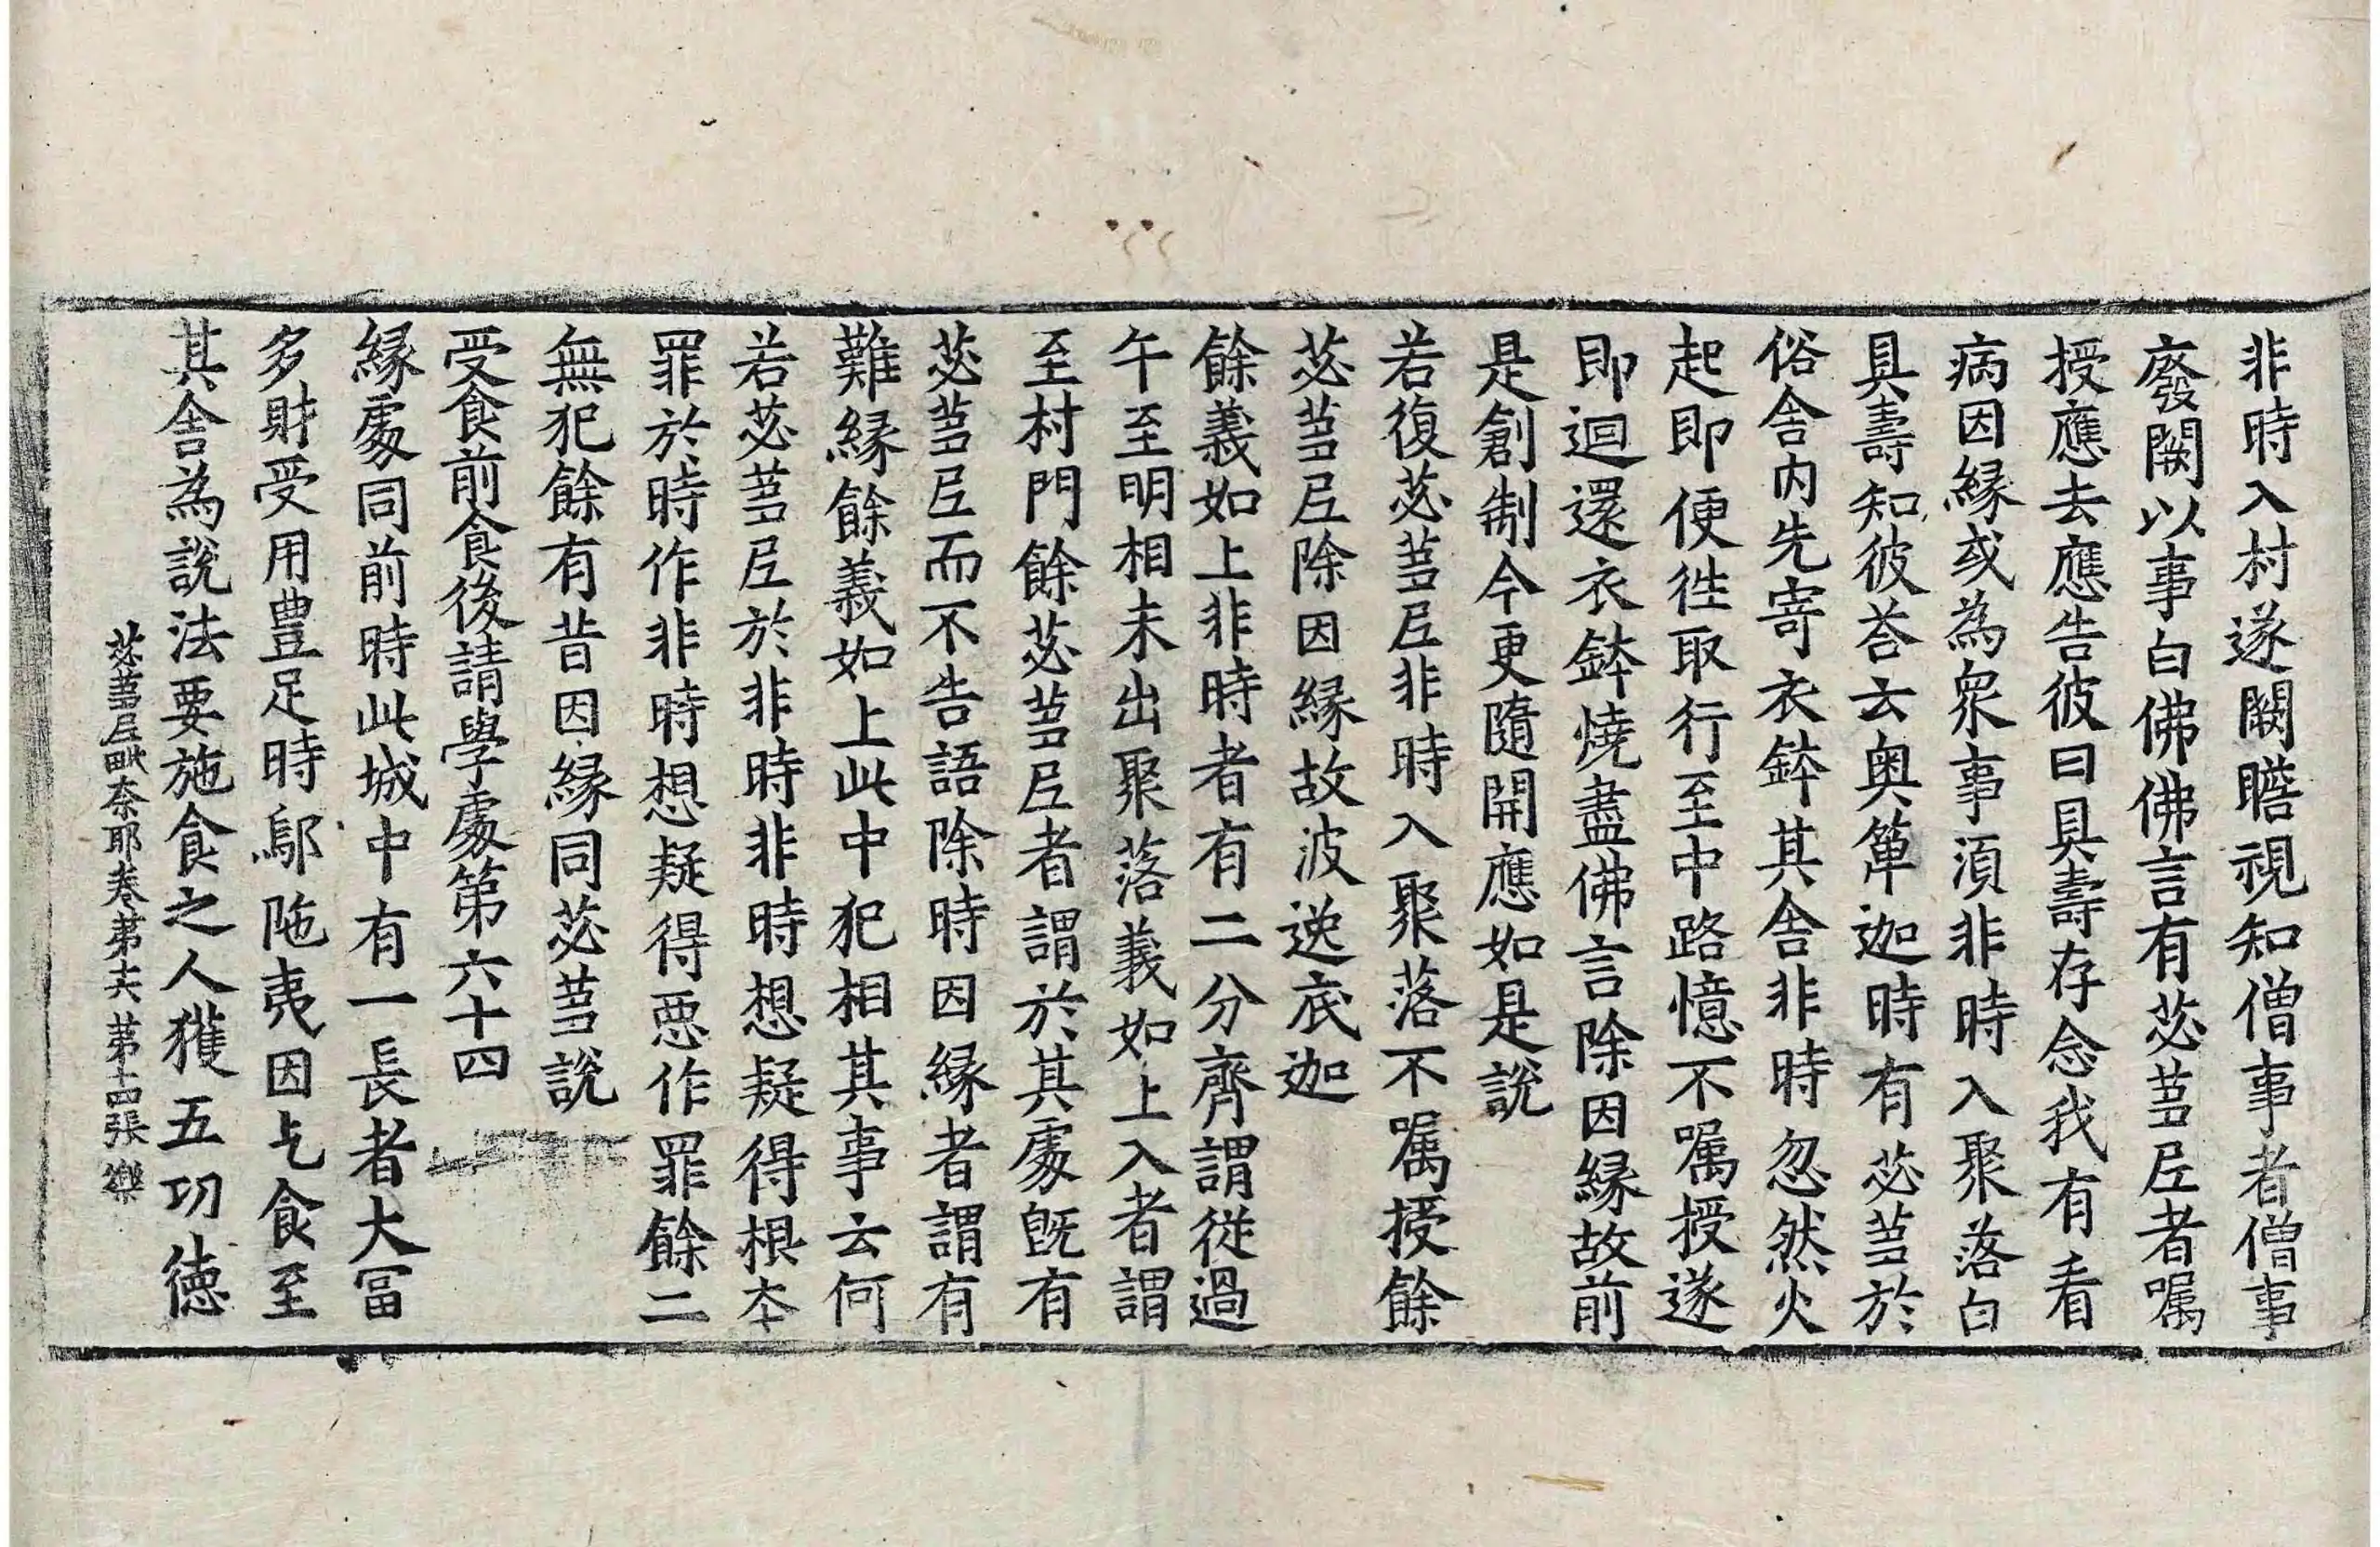 非時入村遂闕瞻視知僧事者僧事
廢闕以事白佛佛言有苾蒭尼者囑
授應去應告彼曰具壽存念我有看
病因緣或為衆事湏非時入聚落白
具壽知彼荅云奥箄迦時有苾蒭於
俗舎内先寄衣鉢其舎非時忽然火
起即便徃取行至中路憶不囑授遂
即迴還衣鉢燒盡佛言除因縁故前
是創制今更隨開應如是說
若復苾蒭尼非時入聚落不囑授餘
苾蒭尼除因縁故波逸底迦
餘義如上非時者有二分齊謂從過
午至明相未出聚落義如上入者謂
至村門餘苾蒭尼者謂於其處旣有
苾蒭尼而不告語除時因縁者謂有
難縁餘義如上此中犯相其事云何
若苾蒭尼於非時非時想疑得根夲
罪於時作非時想疑得惡作罪餘二
無犯餘有昔因縁同苾蒭說
受食前食後請學處第六十四
縁處同前時此城中有一長者大冨
多財受用豊足時鄔陁夷因乞食至
其舎為說法要施食之人獲五功德
苾蒭尼毗奈耶卷第十六 第十四張